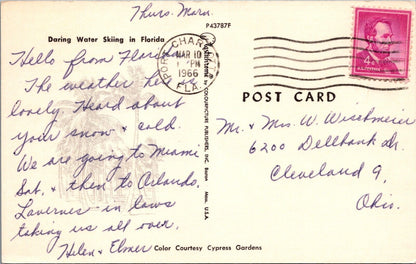 Thurs. Morn.
P43787F
Daring Water Skiing in Florida
Hello from Florida
The weather here is
lovely. Heard about
your snow & cold.
We are going to Miami
Sat. & then to Orlando.
Laverne's in laws
taking us all over.
Helen & Elmer
Color Courtesy Cypress Gardens
PORT CHARLOTTE
MAR 10
PM
1966
FLA.
COLOURPICTURE PUBLISHERS, INC., Boston, Mass., U.S.A.
4¢
POST CARD
Mr. & Mrs. W. Wischmeier
6200 Dellbank Dr.
Cleveland 9,
Ohio.